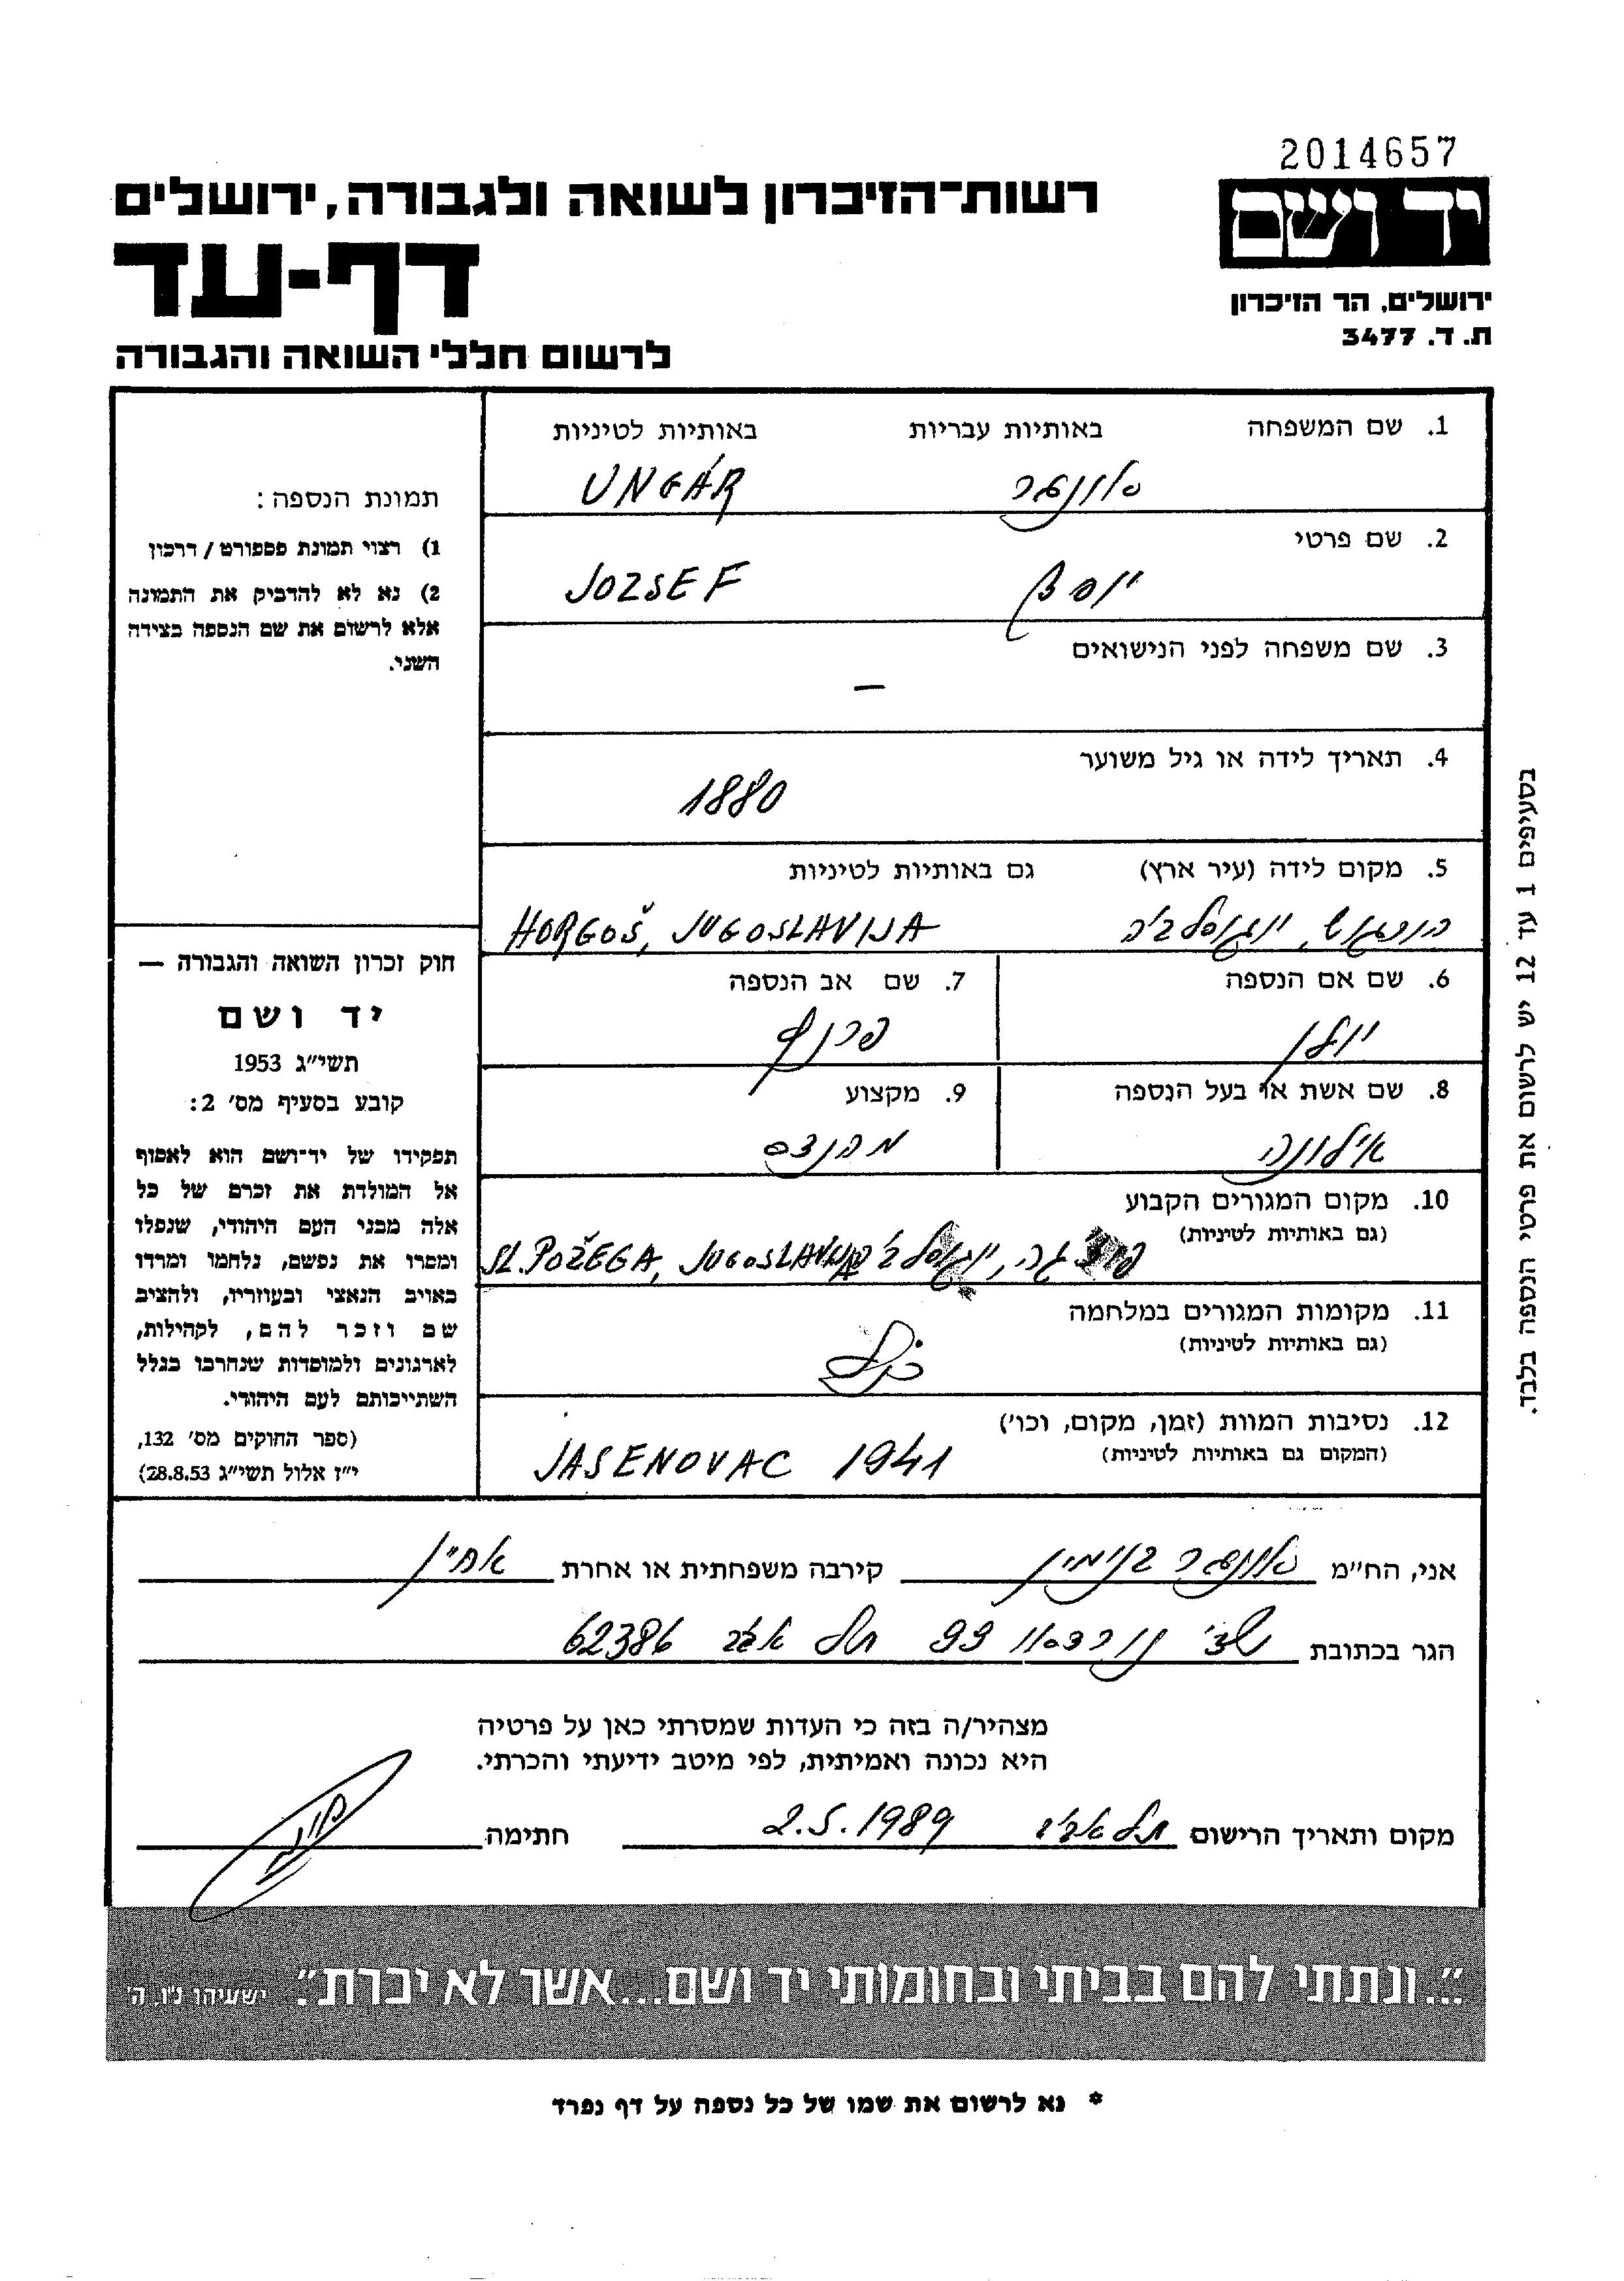 2014657
יד ושם
רשות־הזיכרון לשואה ולגבורה, ירושלים
דף-עד
לרשום חללי השואה והגבורה
ירושלים, הר הזיכרון
ת. ד. 3477
1. שם המשפחה באותיות עבריות באותיות לטיניות
אונגר UNGÁR
2. שם פרטי
יוסף JOZSEF
3. שם משפחה לפני הנישואים
—
4. תאריך לידה או גיל משוער
1880
5. מקום לידה (עיר ארץ) גם באותיות לטיניות
הורגוש, יוגוסלביה HORGOŠ, JUGOSLAVIJA
6. שם אם הנספה 7. שם אב הנספה
יולן פרנץ
8. שם אשת או בעל הנספה 9. מקצוע
אילונה מהנדס
10. מקום המגורים הקבוע
(גם באותיות לטיניות)
יוגוסלביה SL. POŽEGA, JUGOSLAVIJA
11. מקומות המגורים במלחמה
(גם באותיות לטיניות)
כנ"ל
12. נסיבות המוות (זמן, מקום, וכו׳)
(המקום גם באותיות לטיניות)
JASENOVAC 1941
תמונת הנספה:
1) רצוי תמונת פספורט / דרכון
2) נא לא להדביק את התמונה
אלא לרשום את שם הנספה בצידה
השני.
חוק זכרון השואה והגבורה —
יד ושם
תשי״ג 1953
קובע בסעיף מס׳ 2:
תפקידו של יד־ושם הוא לאסוף
אל המולדת את זכרם של כל
אלה מבני העם היהודי, שנפלו
ומסרו את נפשם, נלחמו ומרדו
באויב הנאצי ובעוזריו, ולהציב
שם וזכר להם, לקהילות,
לארגונים ולמוסדות שנחרבו בגלל
השתייכותם לעם היהודי.
(ספר החוקים מס׳ 132,
י״ז אלול תשי״ג 28.8.53)
בסעיפים 1 עד 12 יש לרשום את פרטי הנספה בלבד.
אני, הח״מ אונגר בנימין קירבה משפחתית או אחרת אחיין
הגר בכתובת שד׳ נורדאו 99 תל אביב 62386
מצהיר/ה בזה כי העדות שמסרתי כאן על פרטיה
היא נכונה ואמיתית, לפי מיטב ידיעתי והכרתי.
מקום ותאריך הרישום תל אביב 2.5.1989 חתימה
"...ונתתי להם בביתי ובחומותי יד ושם...אשר לא יכרת". ישעיהו נ"ו, ה'
* נא לרשום את שמו של כל נספה על דף נפרד